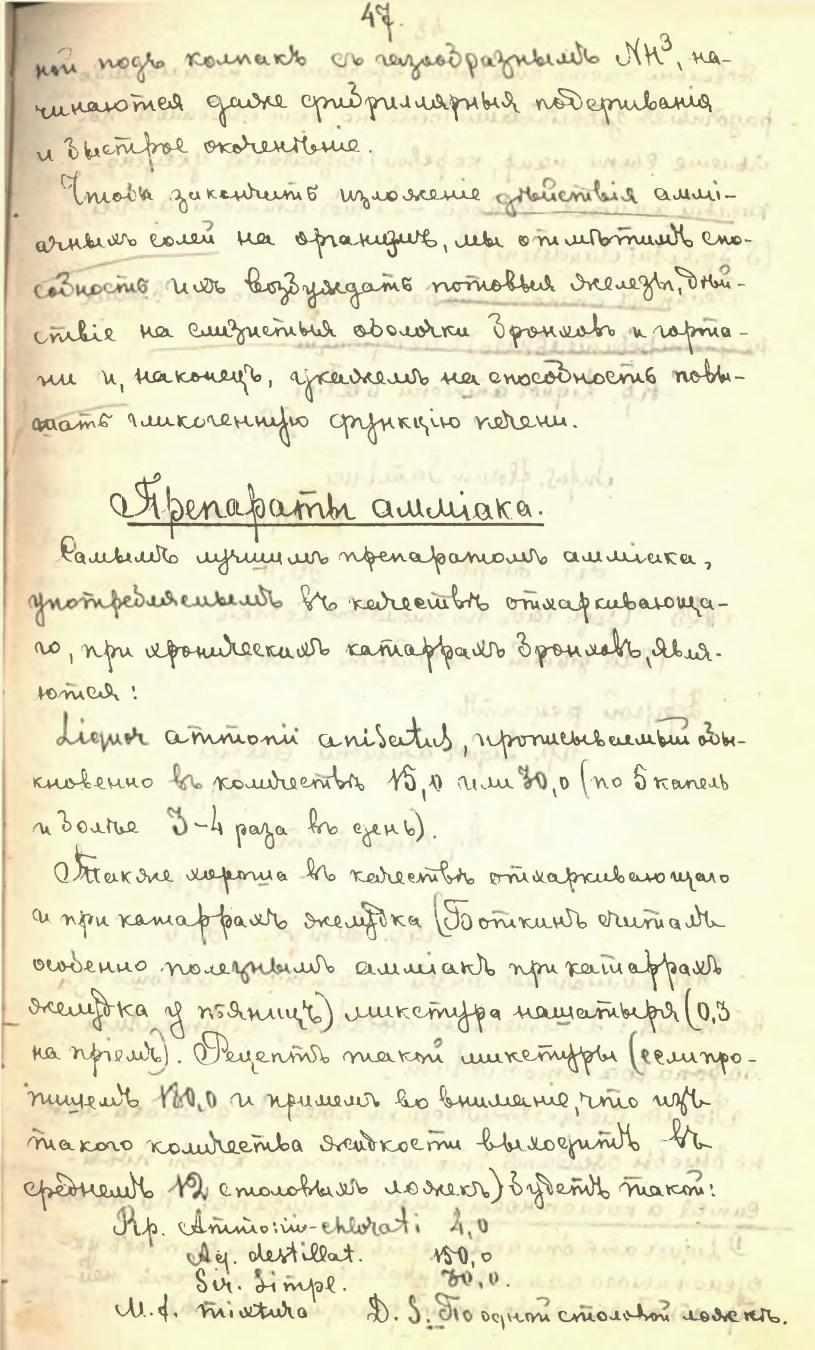 47.
ной подъ колпакъ съ газообразнымъ NH³, на-
чинаются даже фибриллярныя подергиванія
и быстрое окоченѣніе.
Чтобы закончить изложеніе дѣйствія аммі-
ачныхъ солей на организмъ, мы отмѣтимъ спо-
собность ихъ возбуждать потовыя железы, дѣй-
ствіе на слизистыя оболочки бронховъ и горта-
ни и, наконецъ, укажемъ на способность повы-
шать гликогенную функцію печени.
Препараты амміака.
Самымъ лучшимъ препаратомъ амміака,
употребляемымъ въ качествѣ отхаркивающа-
го, при хроническихъ катаррахъ бронховъ, явля-
ются:
Liquor ammonii anisatus, прописываемый обы-
кновенно въ количествѣ 15,0 или 30,0 (по 5 капель
и болѣе 3-4 раза въ день).
Также хороша въ качествѣ отхаркивающаго
и при катаррахъ желудка (Боткинъ считалъ
особенно полезнымъ амміакъ при катаррахъ
желудка у пьяницъ) микстура нашатыря (0,3
на пріемъ). Рецептъ такой микстуры (если про-
пишемъ 180,0 и примемъ во вниманіе, что изъ
такого количества жидкости выходитъ въ
среднемъ 12 столовыхъ ложекъ) будетъ такой:
Rp. Ammonii-chlorati 4,0
Aq. destillat. 150,0
Sir. Simpl. 30,0.
M. f. mixtura D. S. По одной столовой ложкѣ.